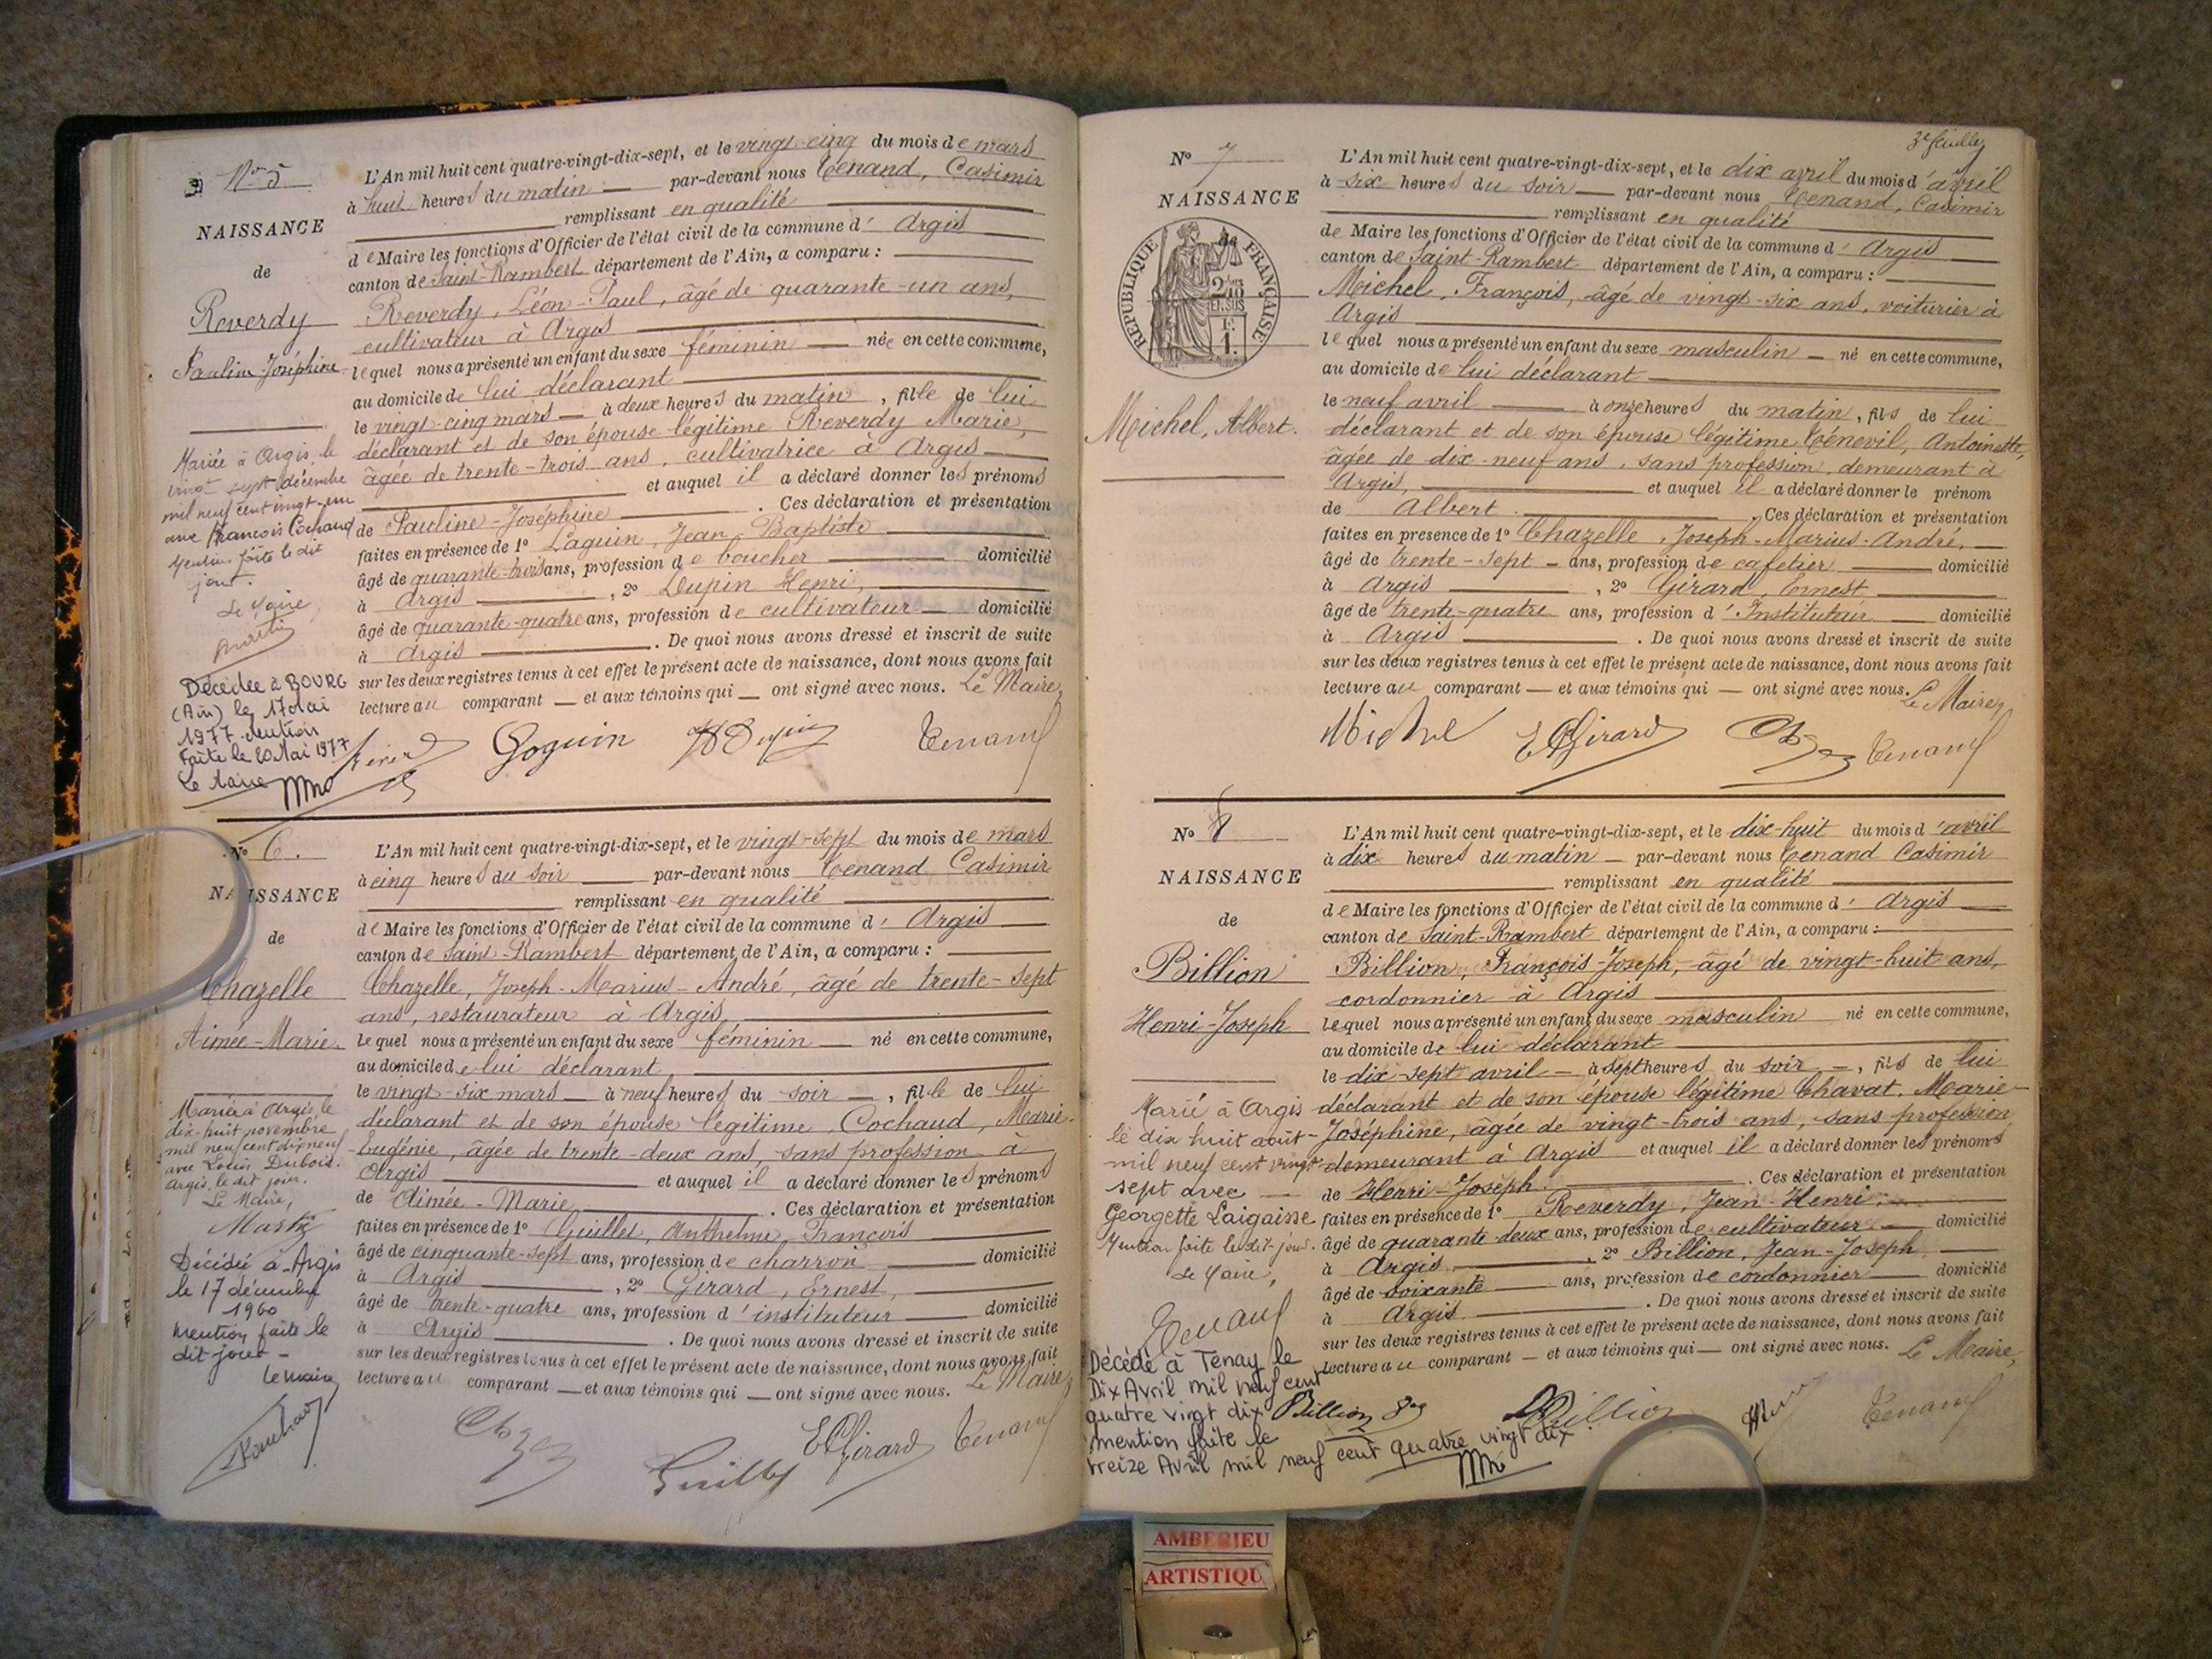 No 5
NAISSANCE
de
Reverdy
Pauline-Joséphine
Mariée à Argis, le
vingt sept décembre
mil neuf cent vingt-un
avec François Cochaud
Mention faite le dit
jour.
Le Maire,
Décédée à BOURG
(Ain) le 17 Mai
1977. Mention
Faite le 20 Mai 1977
Le Maire
L'An mil huit cent quatre-vingt-dix-sept, et le vingt-cinq du mois de mars
à huit heures du matin par-devant nous Tenand, Casimir
remplissant en qualité
de Maire les fonctions d'Officier de l'état civil de la commune d' Argis
canton de Saint-Rambert département de l'Ain, a comparu :
Reverdy, Léon-Paul, âgé de quarante-un ans,
cultivateur à Argis
lequel nous a présenté un enfant du sexe féminin née en cette commune,
au domicile de lui déclarant
le vingt-cinq mars à deux heures du matin, fille de lui
déclarant et de son épouse légitime Reverdy Marie,
âgée de trente-trois ans, cultivatrice à Argis
et auquel il a déclaré donner les prénoms
de Pauline-Joséphine . Ces déclaration et présentation
faites en présence de 1° Laguin, Jean Baptiste
âgé de quarante-trois ans, profession de boucher domicilié
à Argis , 2° Dupin Henri,
âgé de quarante-quatre ans, profession de cultivateur domicilié
à Argis . De quoi nous avons dressé et inscrit de suite
sur les deux registres tenus à cet effet le présent acte de naissance, dont nous avons fait
lecture au comparant et aux témoins qui ont signé avec nous. Le Maire,
Goguin Tenand
No 6.
NAISSANCE
de
Chazelle
Aimée-Marie.
Mariée à Argis, le
dix-huit novembre
mil neuf cent dix neuf
avec Louis Dubois.
Argis, le dit jour.
Le Maire,
Décédée à Argis
le 17 décembre
1960
Mention faite le
dit jour -
Le maire
L'An mil huit cent quatre-vingt-dix-sept, et le vingt-sept du mois de mars
à cinq heures du soir par-devant nous Tenand Casimir
remplissant en qualité
de Maire les fonctions d'Officier de l'état civil de la commune d' Argis
canton de Saint-Rambert département de l'Ain, a comparu :
Chazelle, Joseph-Marius-André, âgé de trente-sept
ans, restaurateur à Argis,
lequel nous a présenté un enfant du sexe féminin né en cette commune,
au domicile de lui déclarant
le vingt-six mars à neuf heures du soir , fille de lui
déclarant et de son épouse légitime, Cochaud, Marie-
Eugénie, âgée de trente-deux ans, sans profession à
Argis et auquel il a déclaré donner les prénoms
de Aimée-Marie . Ces déclaration et présentation
faites en présence de 1° Guillet, Anthelme, François
âgé de cinquante-sept ans, profession de charron domicilié
à Argis , 2° Girard, Ernest,
âgé de trente-quatre ans, profession d'instituteur domicilié
à Argis . De quoi nous avons dressé et inscrit de suite
sur les deux registres tenus à cet effet le présent acte de naissance, dont nous avons fait
lecture au comparant et aux témoins qui ont signé avec nous. Le Maire,
EGirard Tenand
3e feuillet
No 7
NAISSANCE
REPUBLIQUE FRANÇAISE
2/10
EN SUS
Michel, Albert.
L'An mil huit cent quatre-vingt-dix-sept, et le dix avril du mois d'avril
à six heures du soir par-devant nous Tenand, Casimir
remplissant en qualité
de Maire les fonctions d'Officier de l'état civil de la commune d' Argis
canton de Saint-Rambert département de l'Ain, a comparu :
Michel, François, âgé de vingt-six ans, voiturier à
Argis
lequel nous a présenté un enfant du sexe masculin né en cette commune,
au domicile de lui déclarant
le neuf avril à onze heures du matin, fils de lui
déclarant et de son épouse légitime Antoinette,
âgée de dix-neuf ans, sans profession, demeurant à
Argis, et auquel il a déclaré donner le prénom
de Albert . Ces déclaration et présentation
faites en presence de 1° Chazelle, Joseph-Marius-André,
âgé de trente-sept ans, profession de cafetier domicilié
à Argis , 2° Girard, Ernest
âgé de trente-quatre ans, profession d'Instituteur domicilié
à Argis . De quoi nous avons dressé et inscrit de suite
sur les deux registres tenus à cet effet le présent acte de naissance, dont nous avons fait
lecture au comparant et aux témoins qui ont signé avec nous. Le Maire,
Michel EGirard Tenand
No 8
NAISSANCE
de
Billion
Henri-Joseph
Marié à Argis
le dix huit août
mil neuf cent vingt
sept avec
Georgette Laigaisse
Mention faite le dit jour.
Le Maire,
Tenand
Décédé à Tenay le
Dix Avril mil neuf cent
quatre vingt dix
mention faite le
treize Avril mil neuf cent quatre vingt dix
L'An mil huit cent quatre-vingt-dix-sept, et le dix-huit du mois d'avril
à dix heures du matin par-devant nous Tenand Casimir
remplissant en qualité
de Maire les fonctions d'Officier de l'état civil de la commune d' Argis
canton de Saint-Rambert département de l'Ain, a comparu :
Billion, François-Joseph, âgé de vingt-huit ans,
cordonnier à Argis
lequel nous a présenté un enfant du sexe masculin né en cette commune,
au domicile de lui déclarant
le dix-sept avril à sept heures du soir , fils de lui
déclarant et de son épouse légitime Chavat, Marie-
Joséphine, âgée de vingt-trois ans, sans profession
demeurant à Argis et auquel il a déclaré donner les prénoms
de Henri-Joseph . Ces déclaration et présentation
faites en présence de 1° Reverdy, Jean-Henri,
âgé de quarante-deux ans, profession de cultivateur domicilié
à Argis , 2° Billion, Jean-Joseph
âgé de soixante ans, profession de cordonnier domicilié
à Argis . De quoi nous avons dressé et inscrit de suite
sur les deux registres tenus à cet effet le présent acte de naissance, dont nous avons fait
lecture au comparant et aux témoins qui ont signé avec nous. Le Maire,
Billion Billion Tenand
AMBERIEU
ARTISTIQU